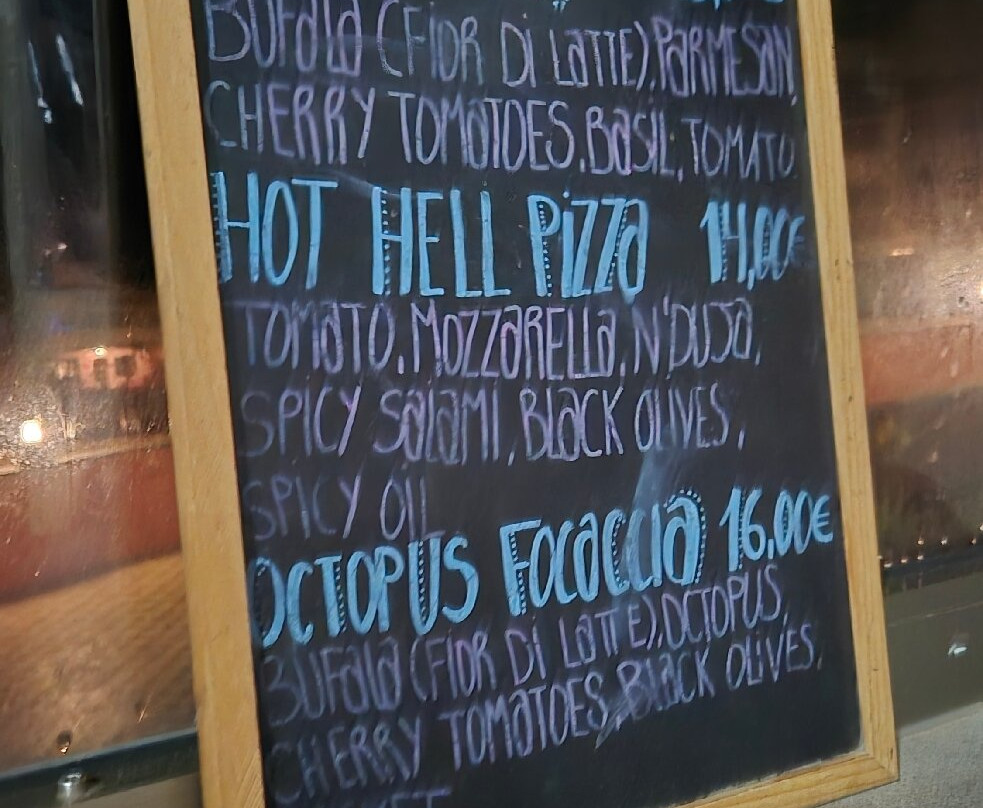 BUFALA (FIOR DI LATTE), PARMESAN,
CHERRY TOMATOES, BASIL, TOMATO
HOT HELL PIZZA 14,00€
TOMATO, MOZZARELLA, N'DUJA,
SPICY SALAMI, BLACK OLIVES,
SPICY OIL
OCTOPUS FOCACCIA 16,00€
BUFALA (FIOR DI LATTE), OCTOPUS,
CHERRY TOMATOES, BLACK OLIVES,